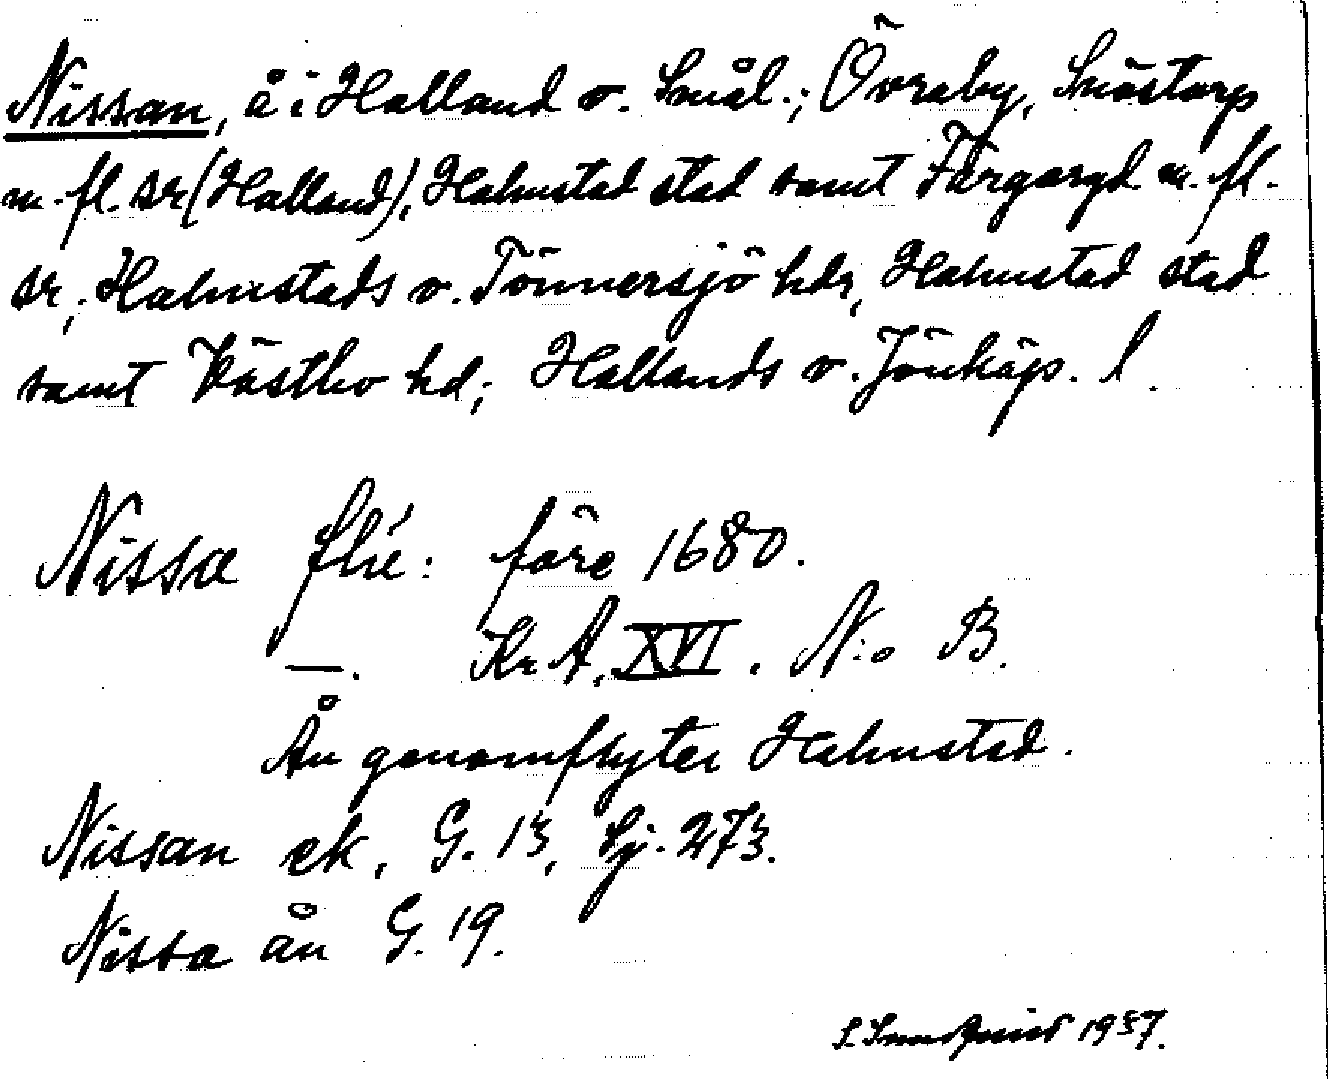 Nissan, å i Halland o. Smål.; Övraby, Snöstorp
m. fl. sr (Halland), Halmstad stad samt Färgaryd m. fl.
sr; Halmstads o. Tönnersjö hdr, Halmstad stad
samt Västbo hd; Hallands o. Jönköp. l.
Nissa flu: före 1680.
—. KrA. XVI. N:o B.
Ån genomflyter Halmstad.
Nissan ek. G. 13, Sj. 273.
Nissa ån G. 19.
1937.